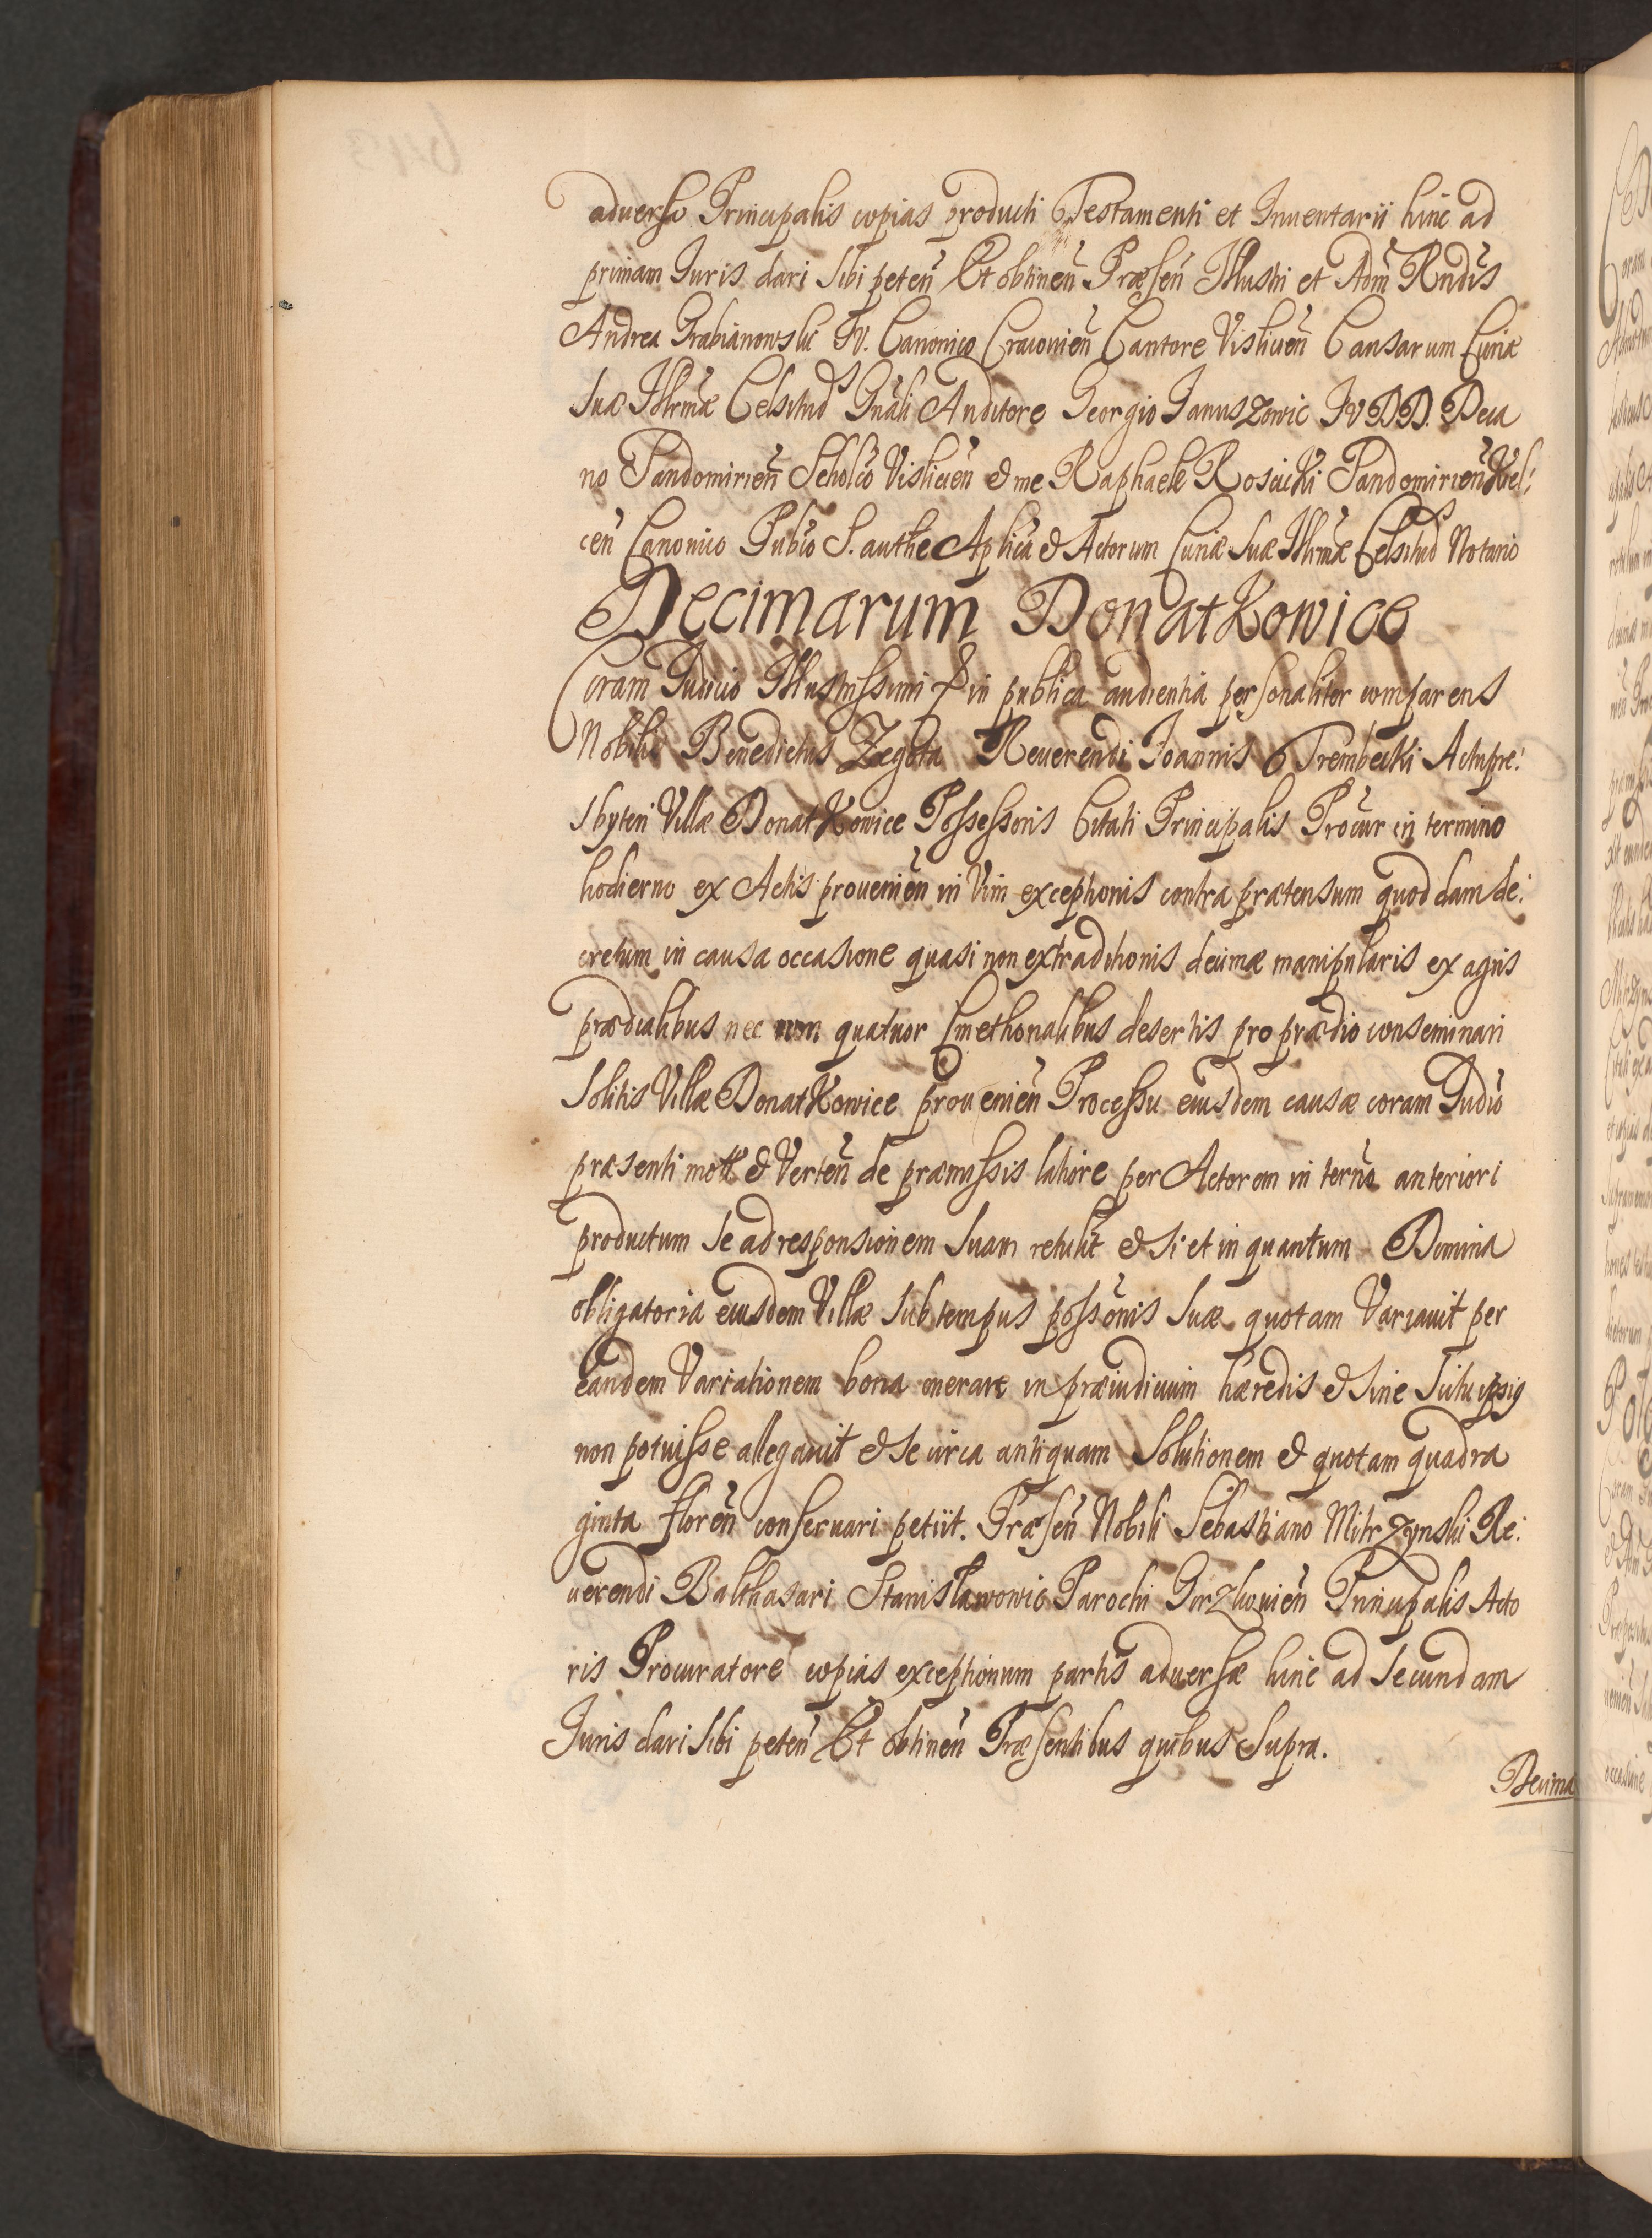 adversa Principalis copias producti Testamenti et Inuentarii hinc ad
primam Iuris dari sibi peteñ Et obtineñ Præseñ Illustri et Adm̃ Rndis
Andrea Grabianowski IV. Canonico Cracouieñ Cantore Vislicieñ Causarum Curiæ
Suæ Illrmæ Celsitud Gñali Auditore Georgio Januszowic IVDD. Deca
no Sandomirieñ Scholco Vislicieñ & me Raphaele Rosicki Sandomirieñ Kiel:
ceñ Canonico Publo S. authe Aplica & Actorum Curiæ Suæ Illrmæ Celsitud Notario
Decimarum Donatkowice
Coram Iudicio Illustrissimi & in publica audientia personaliter comparens
Nobilis Benedictus Zegota Reuerendi Joannis Trembecki Actupre:
sbyteri Villæ Donatkowice Possessoris Citati Principalis Procur in termino
hodierno ex Actis proueñien in Vim exceptionis contra prætensum quoddam de:
cretum in causa occasione quasi non extraditionis decimæ manipularis ex agris
prædialibus nec non quatuor Cmethonalibus desertis pro prædio conseminari
solitis Villæ Donatkowice prouenieñ Processu eiusdem causæ coram Iudio
præsenti mott & Verteñ de præmissis latiore per Actorem in terno anteriori
productum se ad responsionem suam retulit & si et in quantum Domina
obligatoria eiusdem Villæ sub tempus possonis suæ quotam Variauit per
eandem Variationem bona onerare in præiudicium hæredis & sine scitu ipsius
non potuisse allegauit & se circa antiquam Solutionem & quotam quadra
ginta floreñ conseruari petiit. Præseñ Nobili Sebastiano Mitrzynski Re:
uerendi Balthasari Stanislawowic Parochi Gorzkouieñ Principalis Acto
ris Procuratore copias exceptionum partis aduersæ hinc ad secundam
Iuris dari sibi peteñ Et obtineñ Præsentibus quibus Supra.
Decima